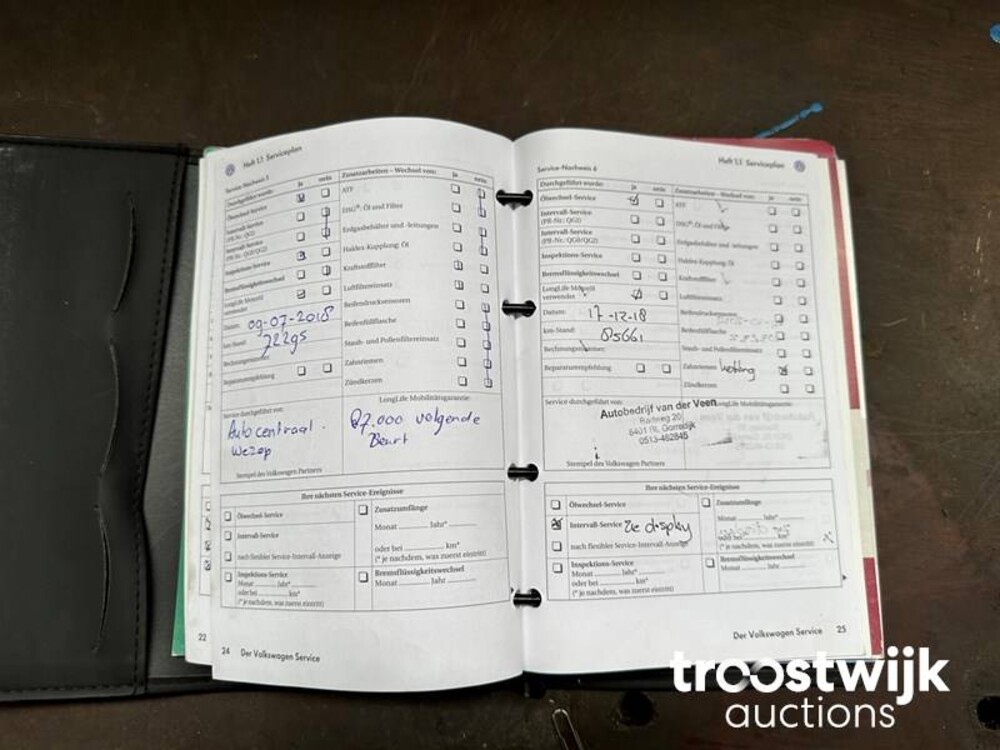 Heft 1.1 Serviceplan
Service-Nachweis 5
Durchgeführt wurde: ja nein
Ölwechsel-Service
Intervall-Service
(PR-Nr. QG1)
Intervall-Service
(PR-Nr. QG0/QG2)
Inspektions-Service
Bremsflüssigkeitswechsel
LongLife Motoröl
verwendet
Datum: 09-07-2018
km-Stand:
Rechnungsnummer:
Reparaturempfehlung
Zusatzarbeiten – Wechsel von: ja nein
ATF
DSG®: Öl und Filter
Erdgasbehälter und -leitungen
Haldex-Kupplung: Öl
Kraftstofffilter
Luftfiltereinsatz
Reifendrucksensoren
Reifenfüllflasche
Staub- und Pollenfiltereinsatz
Zahnriemen
Zündkerzen
Service durchgeführt von:
Autocentraal
Wezep
Stempel des Volkswagen Partners
LongLife Mobilitätsgarantie:
87.000 volgende
Beurt
Ihre nächsten Service-Ereignisse
Ölwechsel-Service
Intervall-Service
nach flexibler Service-Intervall-Anzeige
Inspektions-Service
Monat Jahr*
oder bei km*
(* je nachdem, was zuerst eintritt)
Zusatzumfänge
Monat Jahr*
oder bei km*
(* je nachdem, was zuerst eintritt)
Bremsflüssigkeitswechsel
Monat Jahr
22
24 Der Volkswagen Service
Heft 1.1 Serviceplan
Service-Nachweis 6
Durchgeführt wurde: ja nein
Ölwechsel-Service
Intervall-Service
(PR-Nr. QG1)
Intervall-Service
(PR-Nr. QG0/QG2)
Inspektions-Service
Bremsflüssigkeitswechsel
LongLife Motoröl
verwendet
Datum: 17-12-18
km-Stand: 85661
Rechnungsnummer:
Reparaturempfehlung
Zusatzarbeiten – Wechsel von: ja nein
ATF
DSG®: Öl und Filter
Erdgasbehälter und -leitungen
Haldex-Kupplung: Öl
Kraftstofffilter
Luftfiltereinsatz
Reifendrucksensoren
Reifenfüllflasche
Staub- und Pollenfiltereinsatz
Zahnriemen
Zündkerzen
Service durchgeführt von:
LongLife Mobilitätsgarantie:
Autobedrijf van der Veen
Badweg 20
8401 BL Gorredijk
0513-462845
Stempel des Volkswagen Partners
Ihre nächsten Service-Ereignisse
Ölwechsel-Service
Intervall-Service Zie display
nach flexibler Service-Intervall-Anzeige
Inspektions-Service
Monat Jahr*
oder bei km*
(* je nachdem, was zuerst eintritt)
Zusatzumfänge
Monat Jahr*
oder bei km*
(* je nachdem, was zuerst eintritt)
Bremsflüssigkeitswechsel
Monat Jahr
Der Volkswagen Service 25
troostwijk
auctions